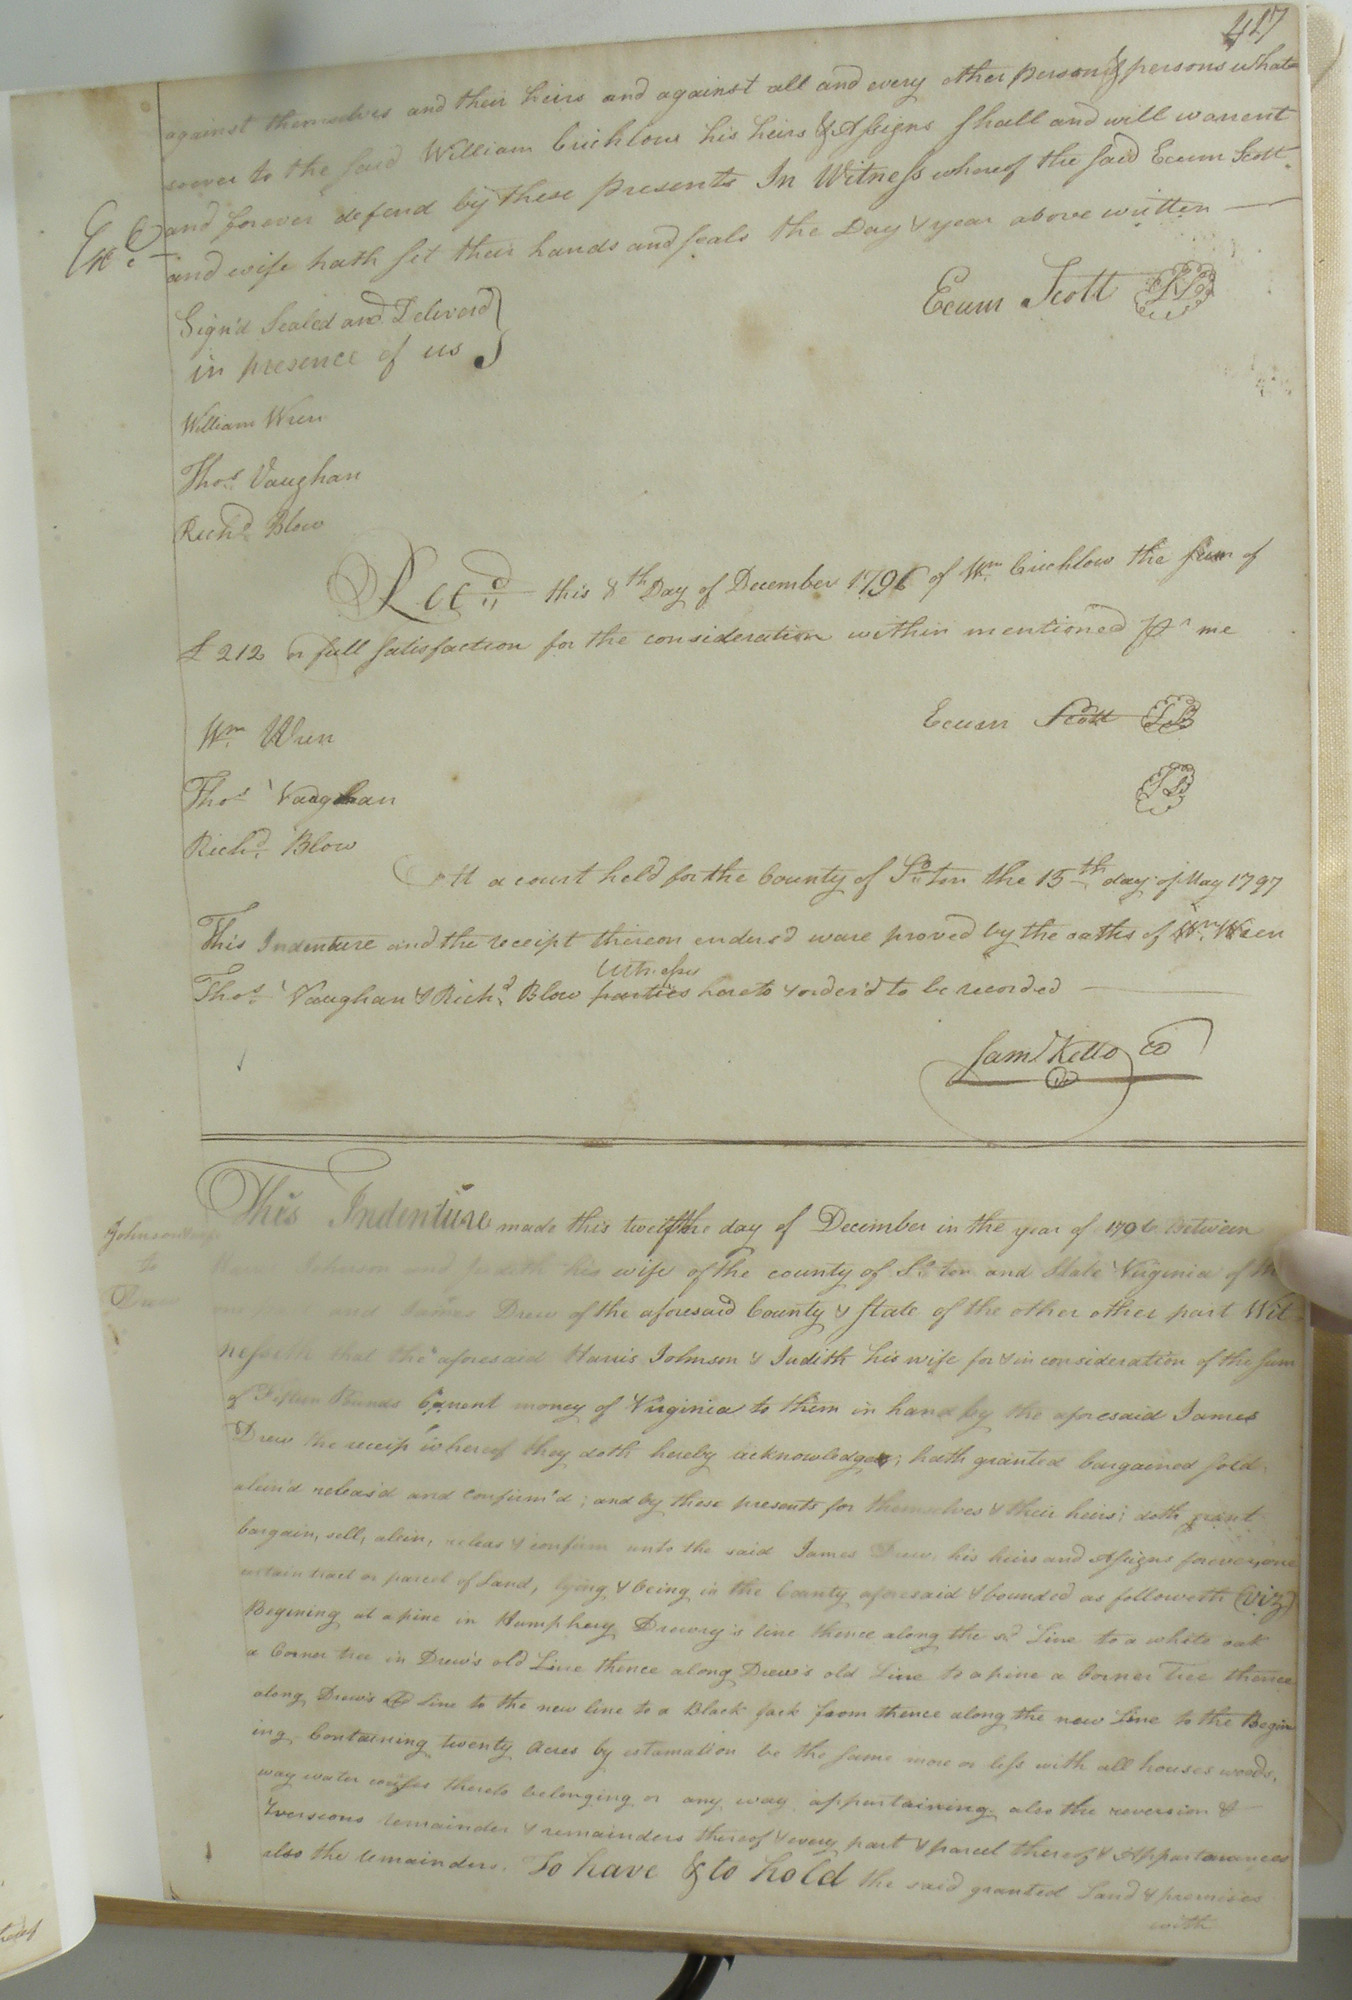 417
against themselves and their heirs and against all and every other person & persons what
soever to the said William Crichlow his heirs & Assigns shall and will warrent
and forever defend by these presents In Witness whereof the said Exum Scott
Ex.d
and wife hath set their hands and seals the Day & year above written
Exum Scott LS
Sign'd Sealed and Deliverd
in presence of us
William Wren
Thos. Vaughan
Richd. Blow
Recd. this 8th Day of December 1796 of Wm. Crichlow the sum of
£ 212 in full satisfaction for the consideration within mentioned pr me
Wm. Wren
Exum Scott LS
Thos. Vaughan
LS
Richd. Blow
Att a court held for the County of So.ton the 15th day of May 1797
This Indenture and the receipt thereon endersd ware proved by the oaths of Wm. Wren
Witnesses
Thos. Vaughan & Richd. Blow parties hereto & order'd to be recorded
Saml Kello CC
This Indenture made this twelfthe day of December in the year of 1796 Between
Johnson
to
Harris Johnson and Judith his wife of the county of So.ton and State Virginia of the
one part and James Drew of the aforesaid County & State of the other other part Wit
nesseth that the aforesaid Harris Johnson & Judith his wife for & in consideration of the sum
of Fifteen Pounds Current money of Virginia to them in hand by the aforesaid James
Drew the receip whereof they doth hereby acknowledge; hath granted bargained sold
alein'd releas'd and confirm'd; and by these presents for themselves & their heirs; doth grant
bargain, sell, alein, releas & confirm unto the said James Drew his heirs and Assigns forever, one
certain tract or parcel of Land, lying & being in the County aforesaid & bounded as followeth (Viz)
Begining at a pine in Humphery Drewry's line thence along the sd. Line to a white oak
a Corner tree in Drew's old Line thence along Drew's old Line to a pine a Corner Tree thence
along Drew's old Line to the new line to a Black Jack from thence along the new Line to the Begin
ing Containing twenty Acres by estamation be the same more or less with all houses woods,
way water courses thereto belonging or any way appartaining also the reversion &
rversions remainder & remainders thereof & every part & parcel thereof & Appartanances
also the remainders. To have & to hold the said granted Land & premises
with